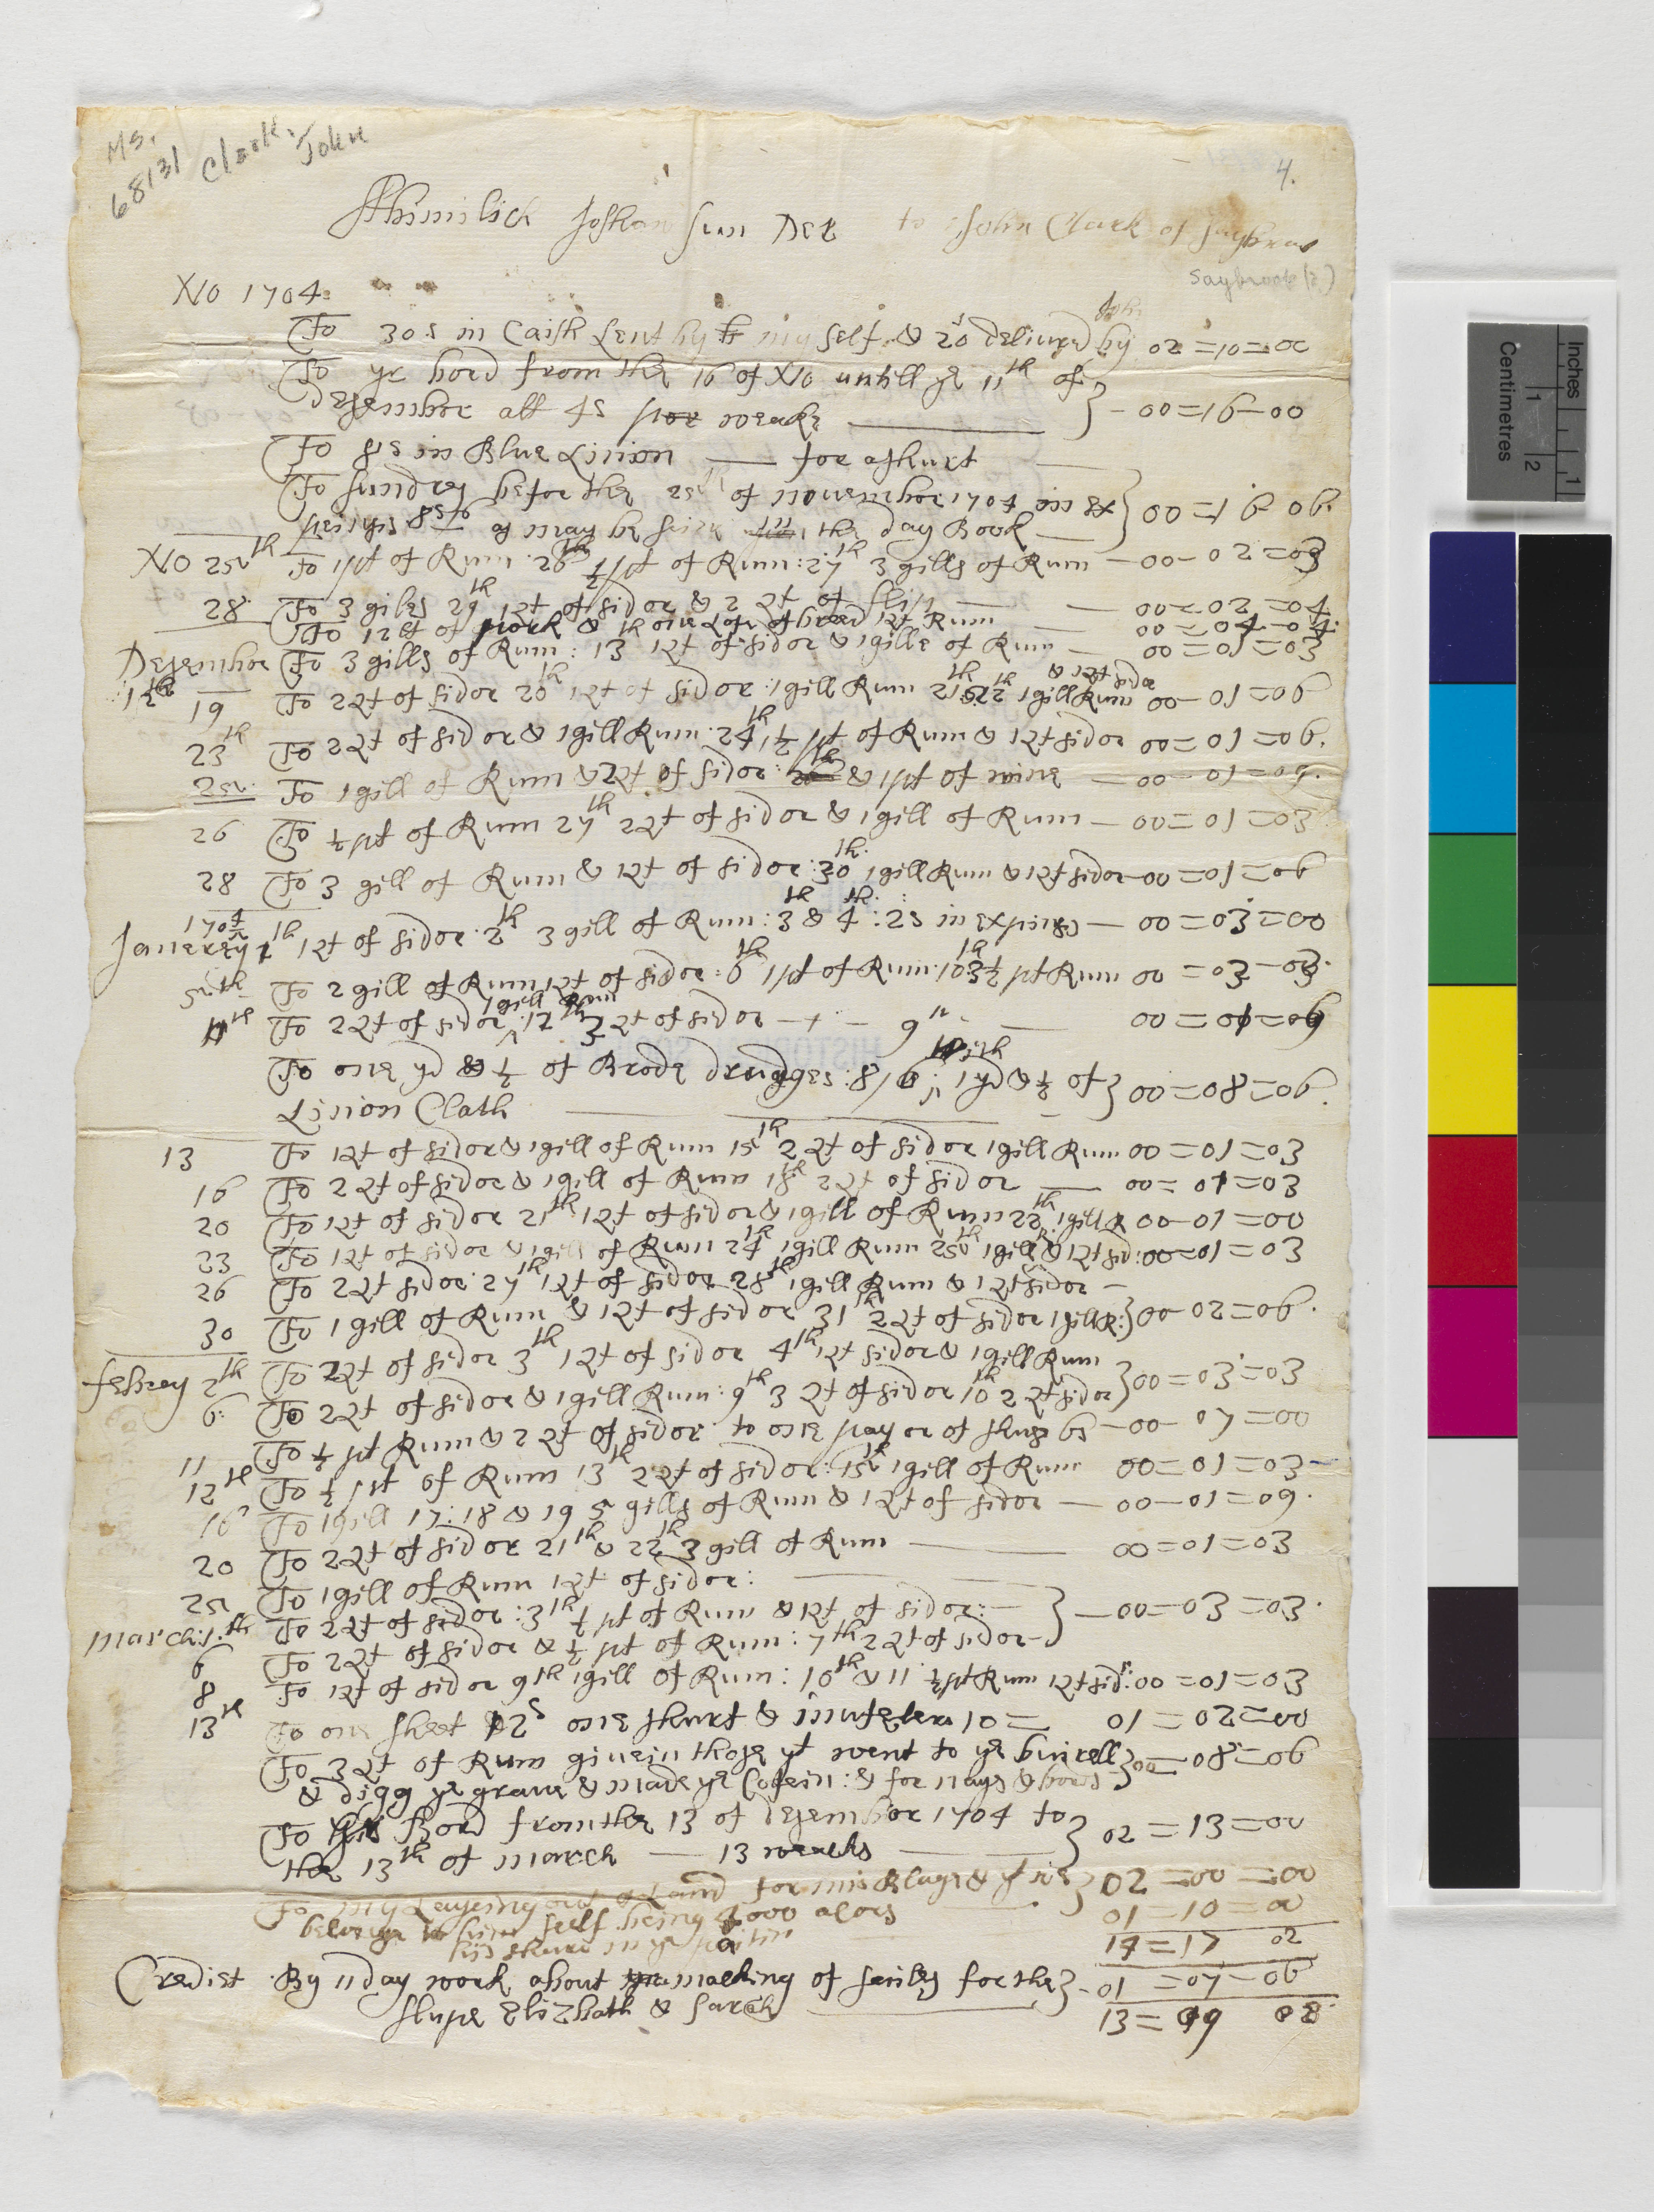 Ms. 68131 Clark, John
4.
Ahimilick Joshan sun Der to John Clark of Saybrook
Saybrook (?)
X/o 1704:
To 30s in Caish Lent by my self & 20s delivred by 02=10=00
To yr bord from the 16 of X/o untill ye 11th of
Desember att 4s per weake } - 00=16-00
To 8s in Blue Linion for a shurt
To sundrey befor the 25th of november 1704 in
as may be seine in the day Book } 00=1 6 06.
X/o 25th To 1 pt of Rum 26th ½ pt of Rum: 27th 3 gills of Rum - 00-02=03
28 To 3 giles 29th 1 Qt of sidor & 2 Qt of flip 00=02=04
To 12 lt of pork & one Lofe of bred 1 Qt Rum 00=04=04
Desember To 3 gills of Rum: 13th 1 Qt of sidor & 1 gille of Rum - 00=01=03
& 1 Qt sidor
19 To 2 Qt of sidor 20th 1 Qt of sidor: 1 gill Rum 21th 22th 1 gill Rum 00-01=06
23th To 2 Qt of sidor & 1 gill Rum: 24th ½ pt of Rum & 1 Qt sidor 00=01=06.
25: To 1 gill of Rum & 2 Qt of sidor: & 1 pt of wine - 00-01=09.
26 To ½ pt of Rum 27th 2 Qt of sidor & 1 gill of Rum - 00=01=03
28 To 3 gill of Rum & 1 Qt of sidor: 30th 1 gill Rum & 1 Qt sidor - 00=01=06
170⅘
Janerey 1th 1 Qt of sidor 2th 3 gill of Rum: 3th & 4th: 2s in expines - 00=03=00
5th To 2 gill of Rum 1 Qt of sidor: 6th 1 pt of Rum: 10th 3½ pt Rum 00=03-03.
1 gill Rum
11th To 2 Qt of sidor 12th 3 Qt of sidor 00=01=09
To one yd & ½ of Brode drudges: 8/6: 1 yd & ½ of
Linion Clath } 00=08=06.
13 To 1 Qt of sidor & 1 gill of Rum 15th 2 Qt of sidor 1 gill Rum 00=01=03
16 To 2 Qt of sidor & 1 gill of Rum 18th 2 Qt of sidor 00=01=03
20 To 1 Qt of sidor 21th 1 Qt of sidor & 1 gill of Rum 22th 1 gill R 00-01=00
23 To 1 Qt of sidor & 1 gill of Rum 24th 1 gill Rum 25th 1 gill & 1 Qt sid: 00=01=03
26 To 2 Qt sidor: 27th 1 Qt of sidor 28th 1 gill Rum & 1 Qt sidor -
30 To 1 gill of Rum & 1 Qt of sidor 31th 2 Qt of sidor 1 gill R: } 00-02=06.
febrey 2th To 2 Qt of sidor 3th 1 Qt of sidor 4th 1 Qt sidor & 1 gill Rum
6: To 2 Qt of sidor & 1 gill Rum: 9th 3 Qt of sidor 10th 2 Qt sidor } 00=03=03
11 To ½ pt Rum & 2 Qt of sidor to one payer of shues 6s - 00-07=00
12th To ½ pt of Rum 13th 2 Qt of sidor: 15th 1 gill of Rum 00=01=03
16 To 1 gill 17: 18 & 19 5 gills of Rum & 1 Qt of sidor - 00-01=09.
20 To 2 Qt of sidor 21th & 22th 3 gill of Rum 00=01=03
25 To 1 gill of Rum 1 Qt of sidor:
march: 1th To 2 Qt of sidor: 3th ½ pt of Rum & 1 Qt of sidor: - } - 00=03=03.
6 To 2 Qt of sidor & ½ pt of Rum: 7th 2 Qt of sidor -
8 To 1 Qt of sidor 9th 1 gill of Rum: 10th & 11 ½ pt Rum 1 Qt sidr: 00=01=03
13th To one sheet 12s one shurt & 10= 01=02=00
To 3 Qt of Rum givein those yt went to ye buirell
& digg ye grave & made ye Cofein: & for nays & bords } 00=08=06
To his Bord from the 13 of Desember 1704 to
the 13th of march - 13 weaks } 02=13=00
To my Layeing out Land for } 02=00=00
belongs to him self being 4000 acors 01=10=00
his share in ye
14=17 02
Credist By 11 day work about making of for the } - 01=07-06
slupe Elizbath & Sarah
13=09 08